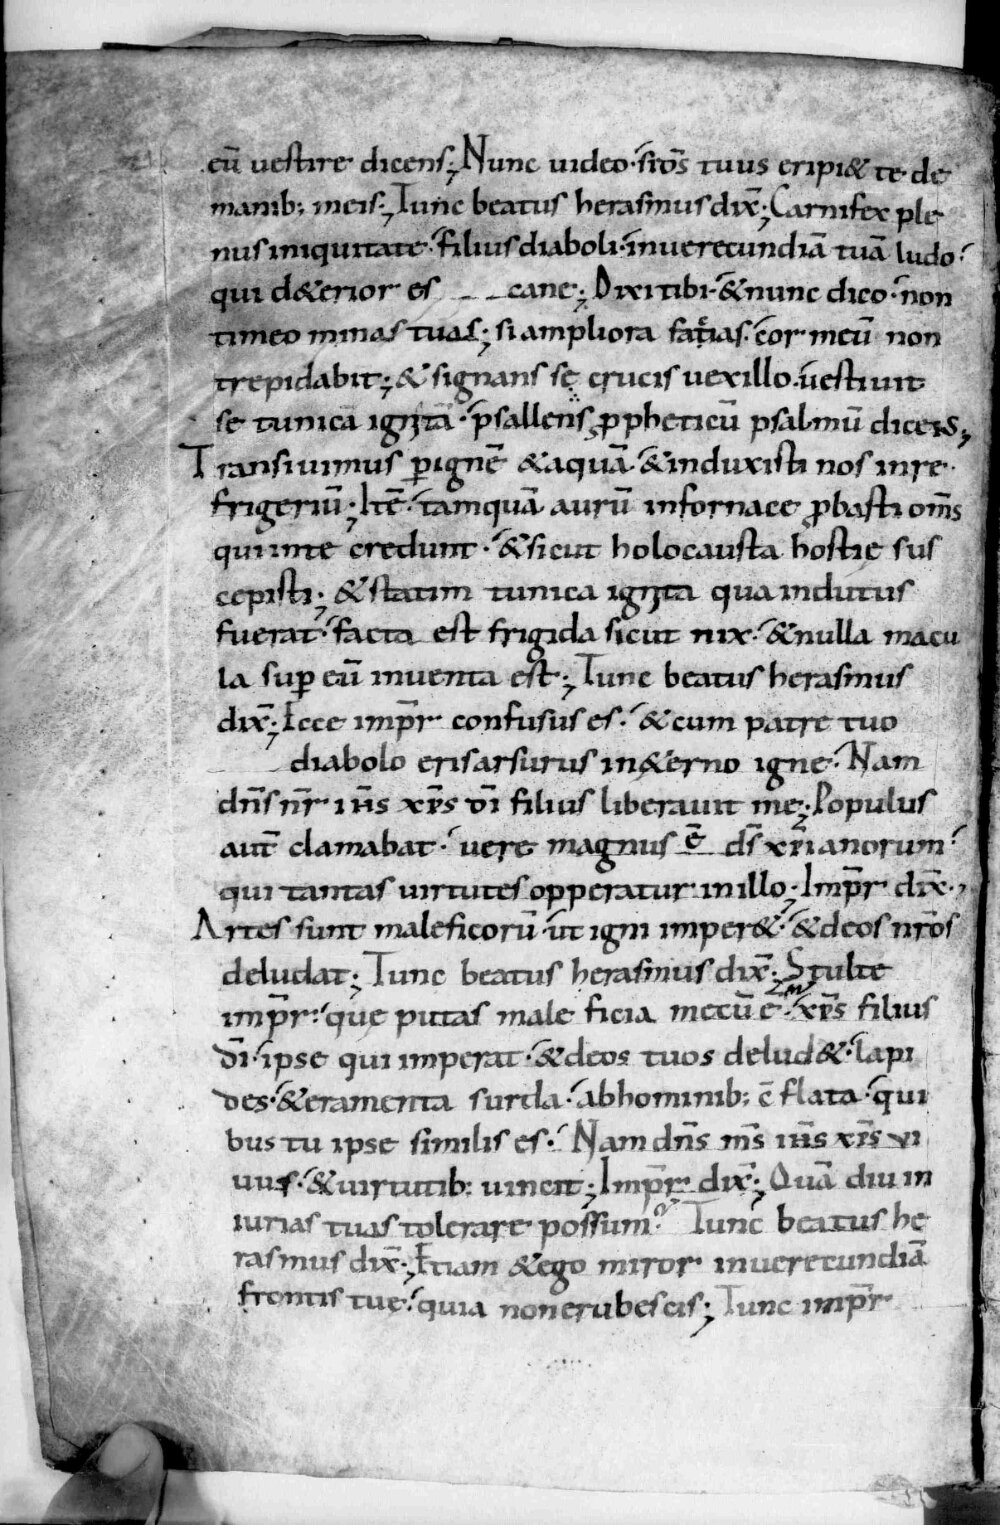 eū uestire dicens; Nunc uideo· si d̄s tuus eripi& te de
manib; meis; Tunc beatus herasmus dix̄; Carnifex ple
nus iniquitate· filius diaboli· inuerecundiā tuā ludo·
qui d&erior es cane; Dixi tibi· & nunc dico· non
timeo minas tuas; si ampliora facias· cor meū non
trepidabit; & signans sę crucis uexillo· uestiuit
se tunicā ignitā· psallens ꝓpheticū psalmū dicens;
Transiuimus ꝑ ignē & aquā· & induxisti nos in re
frigeriū; Itē· tamquā aurū in fornace ꝓbasti om̄s
qui in te credunt· & sicut holocausta hostię sus
cepisti; & statim tunica ignita qua indutus
fuerat· facta est frigida sicut nix· & nulla macu
la suꝑ eū inuenta est; Tunc beatus herasmus
dix̄; Ecce imp̄r confusus es· & cum patre tuo
diabolo eris arsurus in &erno igne· Nam
dn̄s nr̄ ih̄s xp̄s dī filius liberauit me; Populus
aut̄ clamabat· uere magnus ē ds̄ xp̄ianorum·
qui tantas uirtutes opperatur in illo; Imp̄r dix̄·,
Artes sunt maleficorū· ut igni imper&· & deos nr̄os
deludat; Tunc beatus herasmus dix̄; Stulte
imp̄r· que putas maleficia mecū ē· xp̄s filius
dī· ipse qui imperat· & deos tuos delud&· lapi
des· & eramenta surda· ab hominib; cōflata· qui
bus tu ipse similis es· Nam dn̄s ms̄ ih̄s xp̄s ui
uus· & uirtutib; uincit; Imp̄r dix̄; Quā diu in
iurias tuas tolerare possum? Tunc beatus he
rasmus dix̄; Etiam & ego miror inuerecundiā
frontis tuę· quia non erubescis; Tunc imp̄r